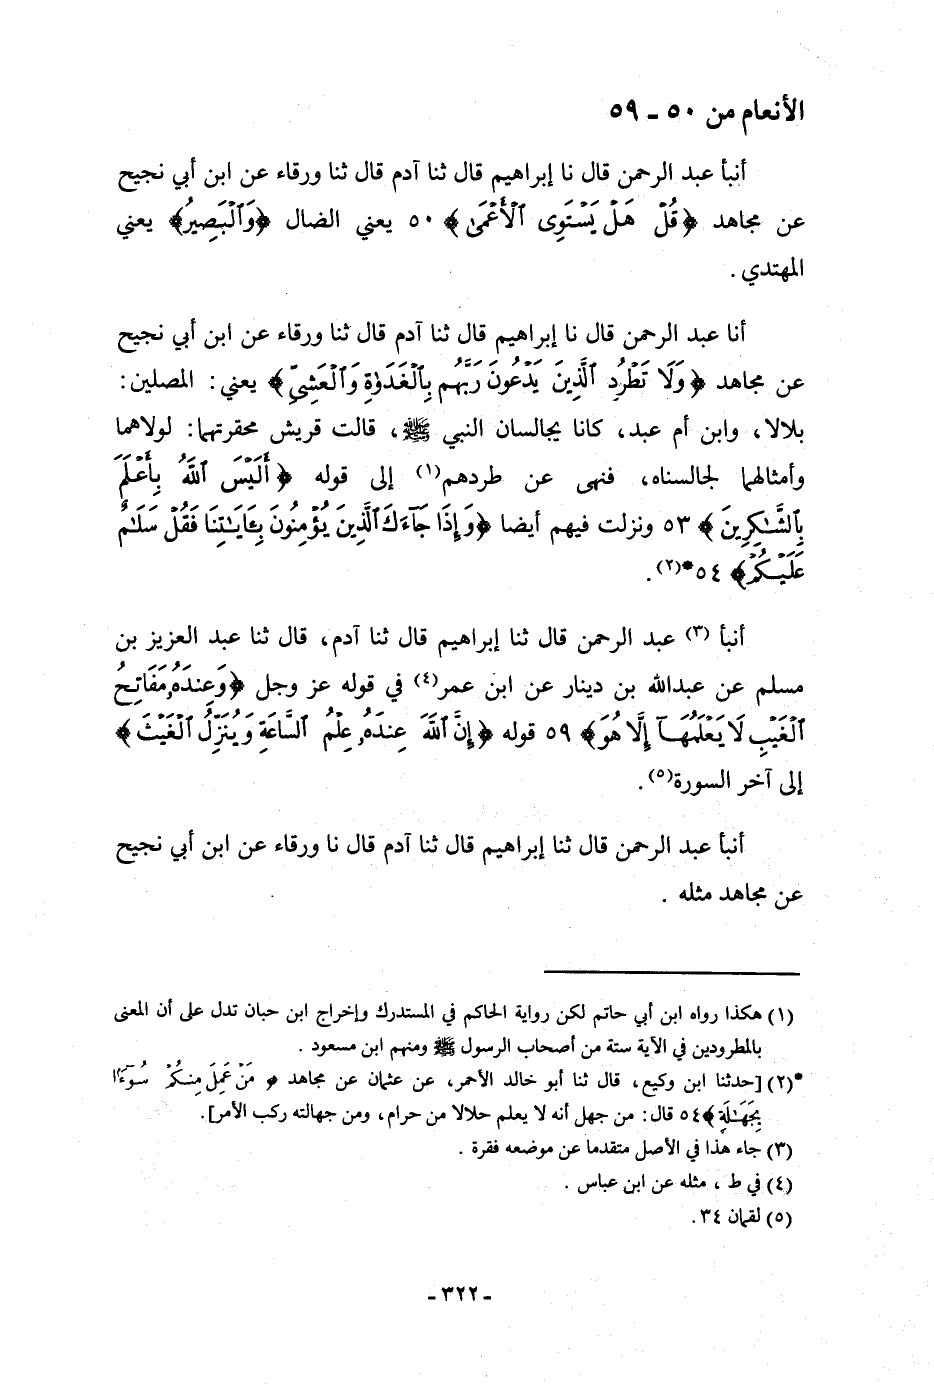 الأنعام من ٥٠ ـ ٥٩
أنبأ عبد الرحمن قال نا إبراهيم قال ثنا آدم قال ثنا ورقاء عن ابن أبي نجيح
عن مجاهد ﴿قُلْ هَلْ يَسْتَوِى ٱلْأَعْمَىٰ﴾ ٥٠ يعني الضال ﴿وَٱلْبَصِيرُ﴾ يعني
المهتدي .
أنا عبد الرحمن قال نا إبراهيم قال ثنا آدم قال ثنا ورقاء عن ابن أبي نجيح
عن مجاهد ﴿وَلَا تَطْرُدِ ٱلَّذِينَ يَدْعُونَ رَبَّهُم بِٱلْغَدَوٰةِ وَٱلْعَشِىِّ﴾ يعني: المصلين:
بلالا، وابن أم عبد، كانا يجالسان النبي ﷺ، قالت قريش محقرتهما: لولاهما
وأمثالهما لجالسناه، فنهى عن طردهم(١) إلى قوله ﴿أَلَيْسَ ٱللَّهُ بِأَعْلَمَ
بِٱلشَّٰكِرِينَ﴾ ٥٣ ونزلت فيهم أيضا ﴿وَإِذَا جَآءَكَ ٱلَّذِينَ يُؤْمِنُونَ بِـَٔايَٰتِنَا فَقُلْ سَلَٰمٌ
عَلَيْكُمْ﴾ ٥٤*(٢).
أنبأ (٣) عبد الرحمن قال ثنا إبراهيم قال ثنا آدم، قال ثنا عبد العزيز بن
مسلم عن عبدالله بن دينار عن ابن عمر(٤) في قوله عز وجل ﴿وَعِندَهُۥ مَفَاتِحُ
ٱلْغَيْبِ لَا يَعْلَمُهَآ إِلَّا هُوَ﴾ ٥٩ قوله ﴿إِنَّ ٱللَّهَ عِندَهُۥ عِلْمُ ٱلسَّاعَةِ وَيُنَزِّلُ ٱلْغَيْثَ﴾
إلى آخر السورة(٥).
أنبأ عبد الرحمن قال ثنا إبراهيم قال ثنا آدم قال نا ورقاء عن ابن أبي نجيح
عن مجاهد مثله .
(١) هكذا رواه ابن أبي حاتم لكن رواية الحاكم في المستدرك وإخراج ابن حبان تدل على أن المعنى
بالمطرودين في الآية ستة من أصحاب الرسول ﷺ ومنهم ابن مسعود .
*(٢) [حدثنا ابن وكيع، قال ثنا أبو خالد الأحمر، عن عثمان عن مجاهد ﴿مَنْ عَمِلَ مِنكُمْ سُوٓءًۢا
بِجَهَٰلَةٍ﴾٥٤ قال: من جهل أنه لا يعلم حلالا من حرام، ومن جهالته ركب الأمر].
(٣) جاء هذا في الأصل متقدما عن موضعه فقرة .
(٤) في ط ، مثله عن ابن عباس .
(٥) لقمان ٣٤.
ـ ٣٢٢ ـ